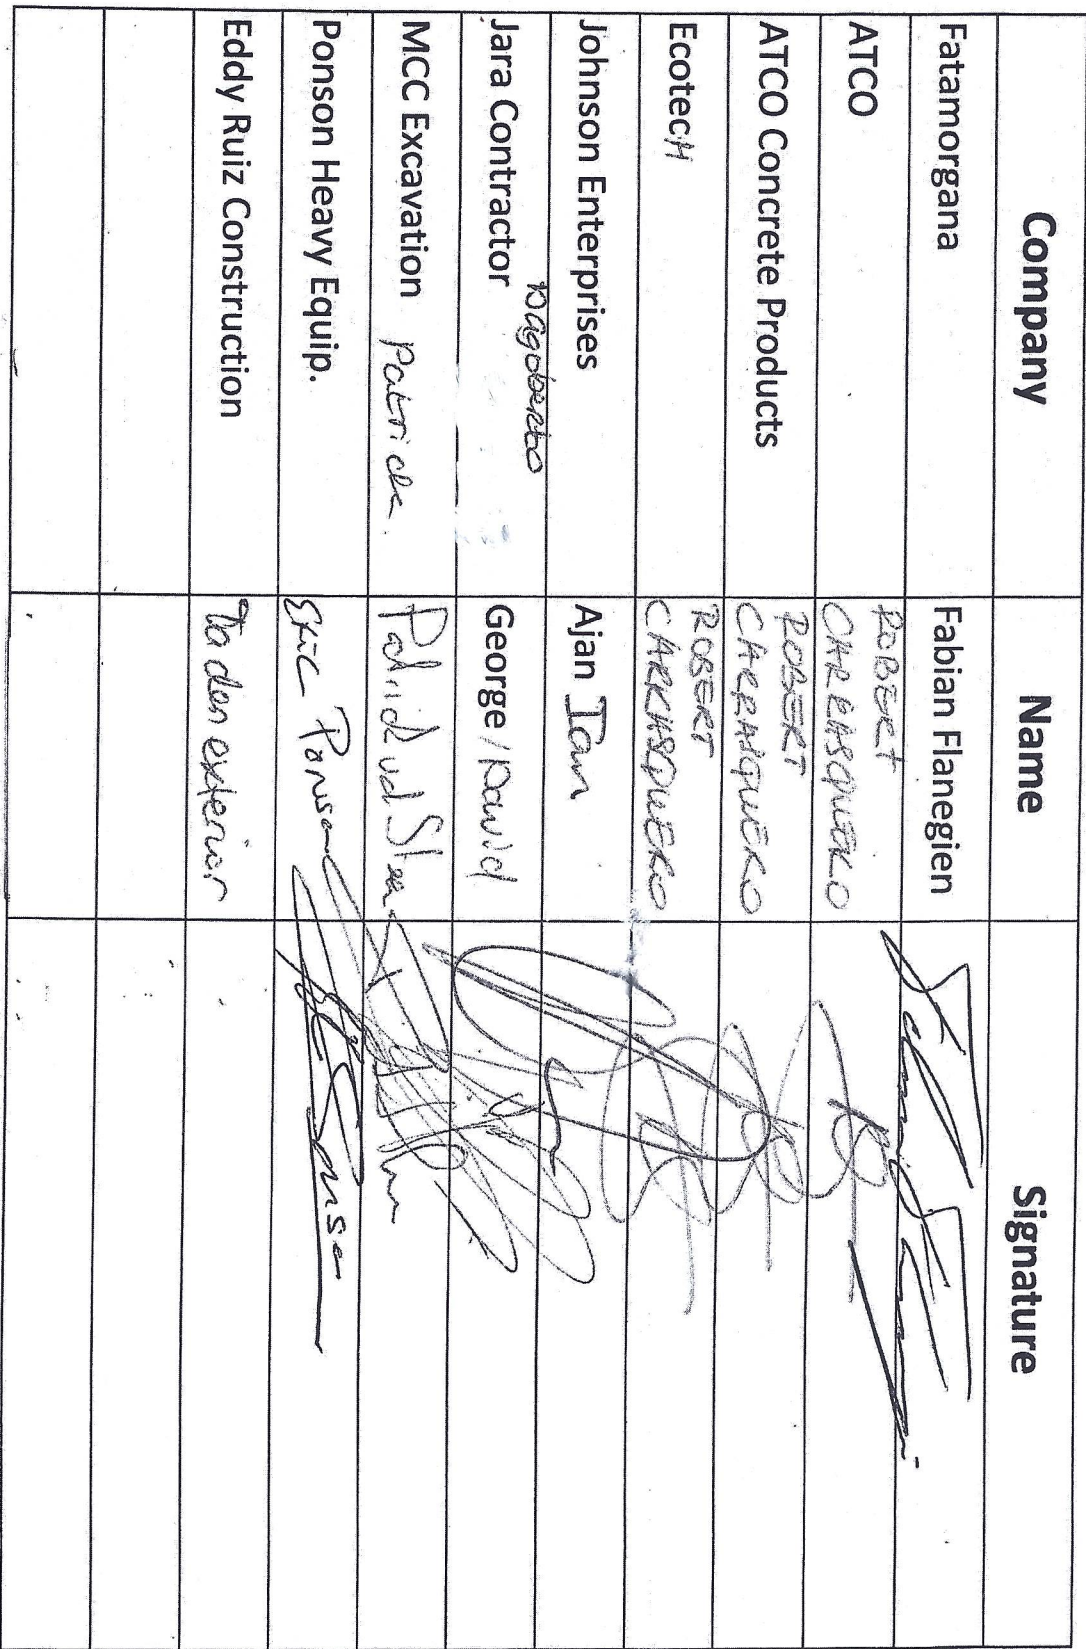 Company Name Signature
Fatamorgana Fabian Flanegien
ATCO ROBERT
CARRASQUERO
ATCO Concrete Products ROBERT
CARRASQUERO
EcotecH ROBERT
CARRASQUERO
Johnson Enterprises Ajan Ian
Dagoberto
Jara Contractor George / Dawid
MCC Excavation Patrick Patrick vd
Ponson Heavy Equip. Eric Ponson
Eddy Ruiz Construction Ta den exterior